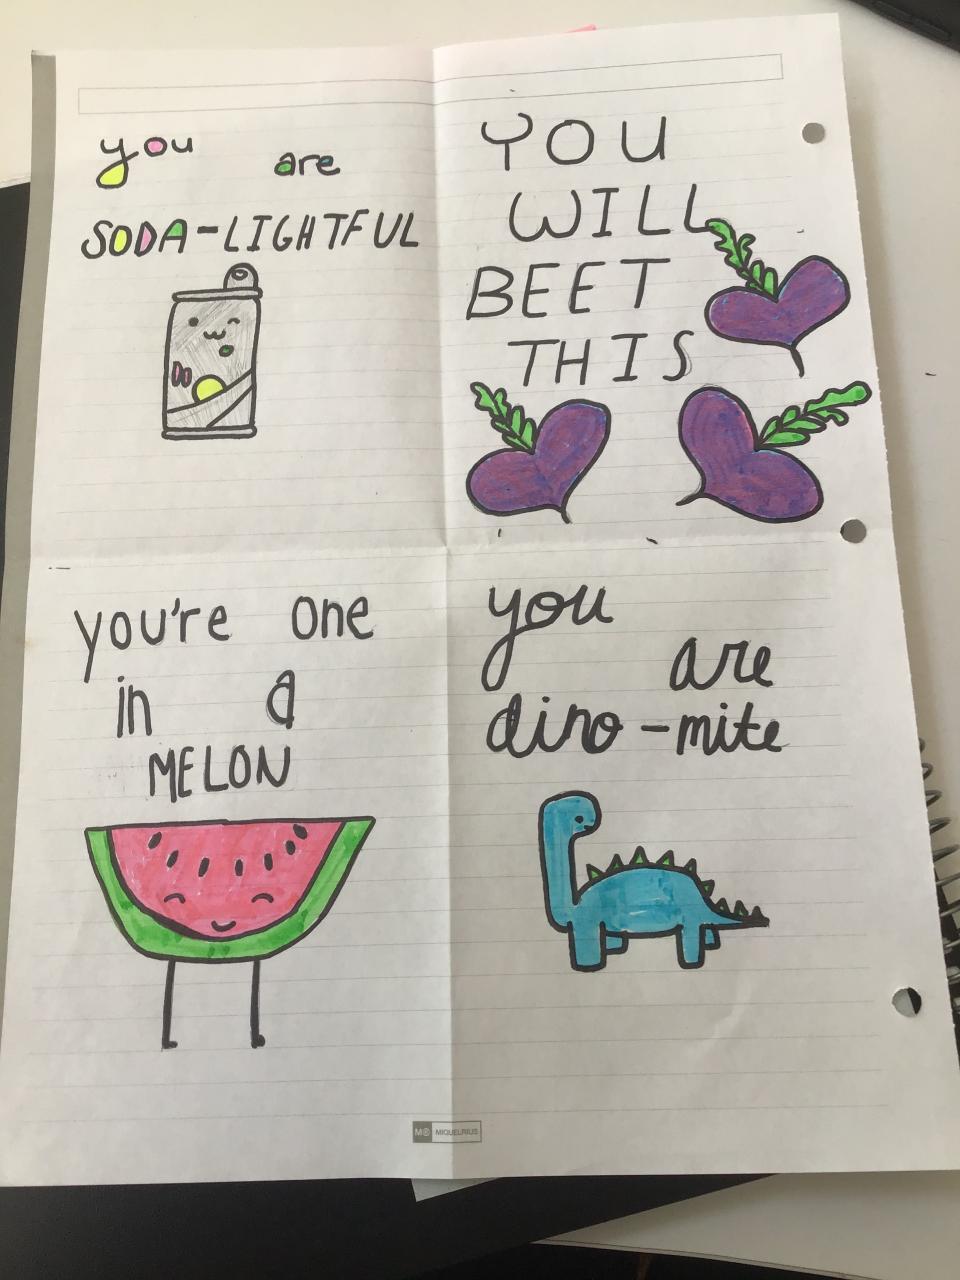 you are
SODA-LIGHTFUL
YOU
WILL
BEET
THIS
you're one
in a
MELON
you
are
dino-mite
MR MIQUELRIUS